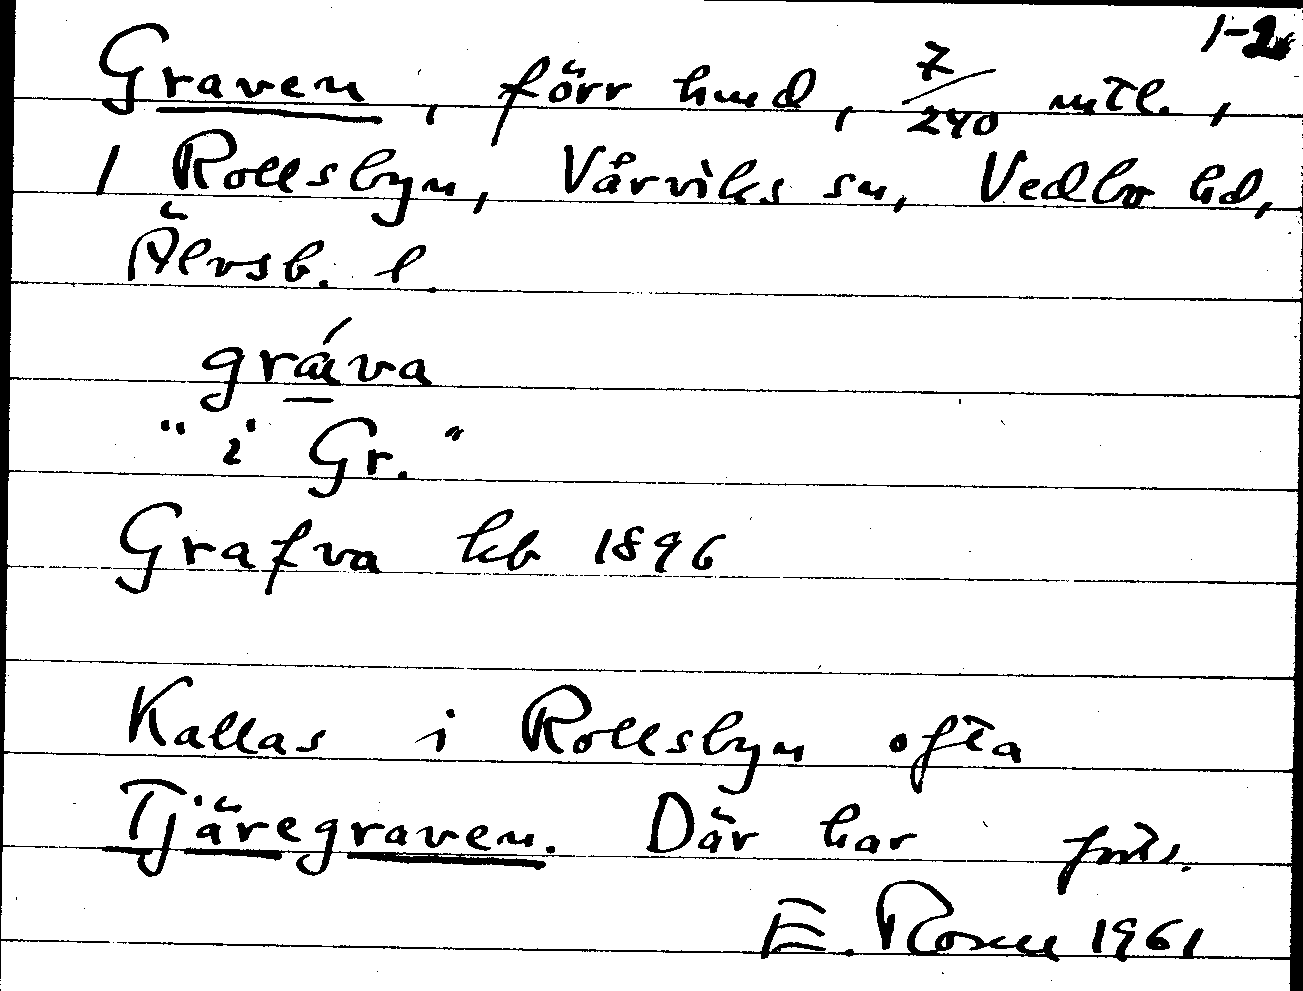 1-2
Graven, förr hmd, 7/240 mtl.,
1 Rollsbyn, Vårviks sn, Vedbo hd,
Älvsb. l.
gráva
"i Gr."
Grafva kb 1896
Kallas i Rollsbyn ofta
Tjäregraven. Där har forts.
E. Rosell 1961